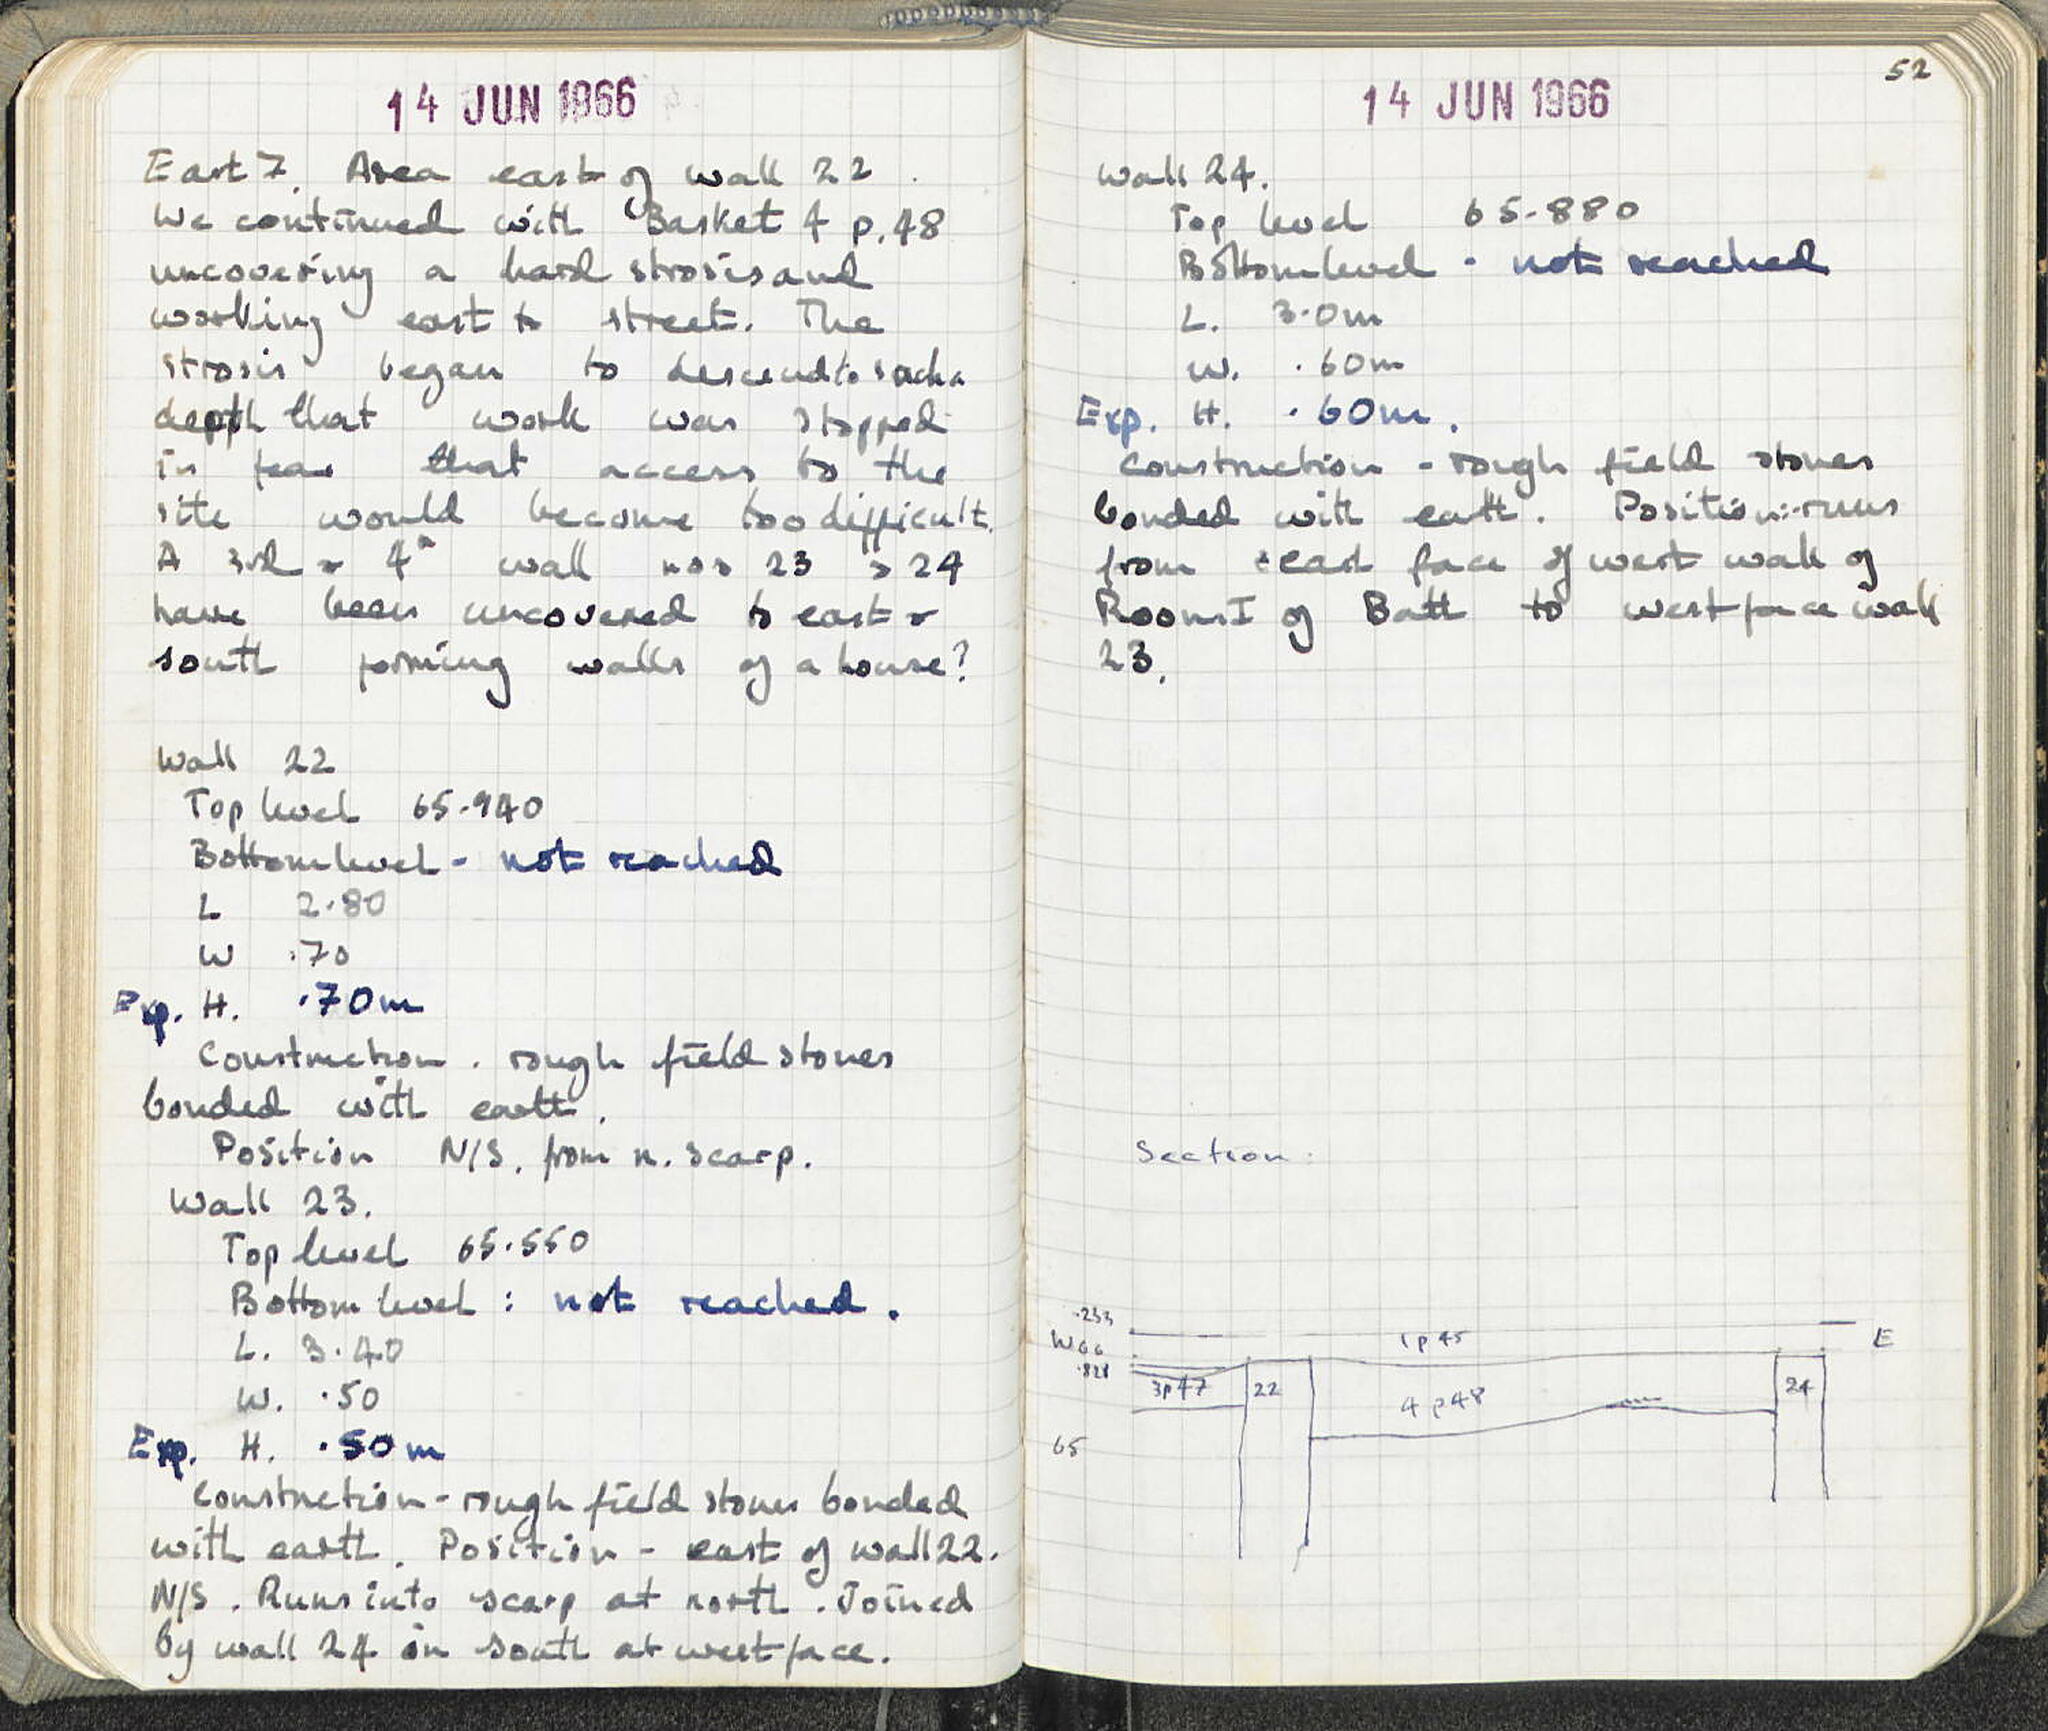 14 JUN 1966
East 7. Area east of wall 22.
We continued with Basket 4 p.48
uncovering a hard strosis and
working east to street. The
strosis began to descend to such a
depth that work was stopped
in fear that access to the
site would become too difficult.
A 3rd & 4th wall nos 23 & 24
have been uncovered to east &
south forming walls of a house?
Wall 22
Top level 65.940
Bottom level - not reached
L 2.80
W .70
Exp. H. .70m
Construction. rough field stones
bonded with earth.
Position N/S. from n. scarp.
Wall 23.
Top level 65.550
Bottom level : not reached.
L. 3.40
W. .50
Exp. H. .50m
Construction - rough field stones bonded
with earth. Position - east of wall 22.
N/S. Runs into scarp at north. Joined
by wall 24 in south at west face.
52
14 JUN 1966
Wall 24.
Top level 65.880
Bottom level - not reached
L. 3.0m
W. .60m
Exp. H. .60m.
Construction - rough field stones
bonded with earth. Position:- runs
from east face of west wall of
Rooms I of Bath to west face wall
23.
Section:
.233
W 66 1 p 45 E
.828
3p47 22 4 p 48 24
65